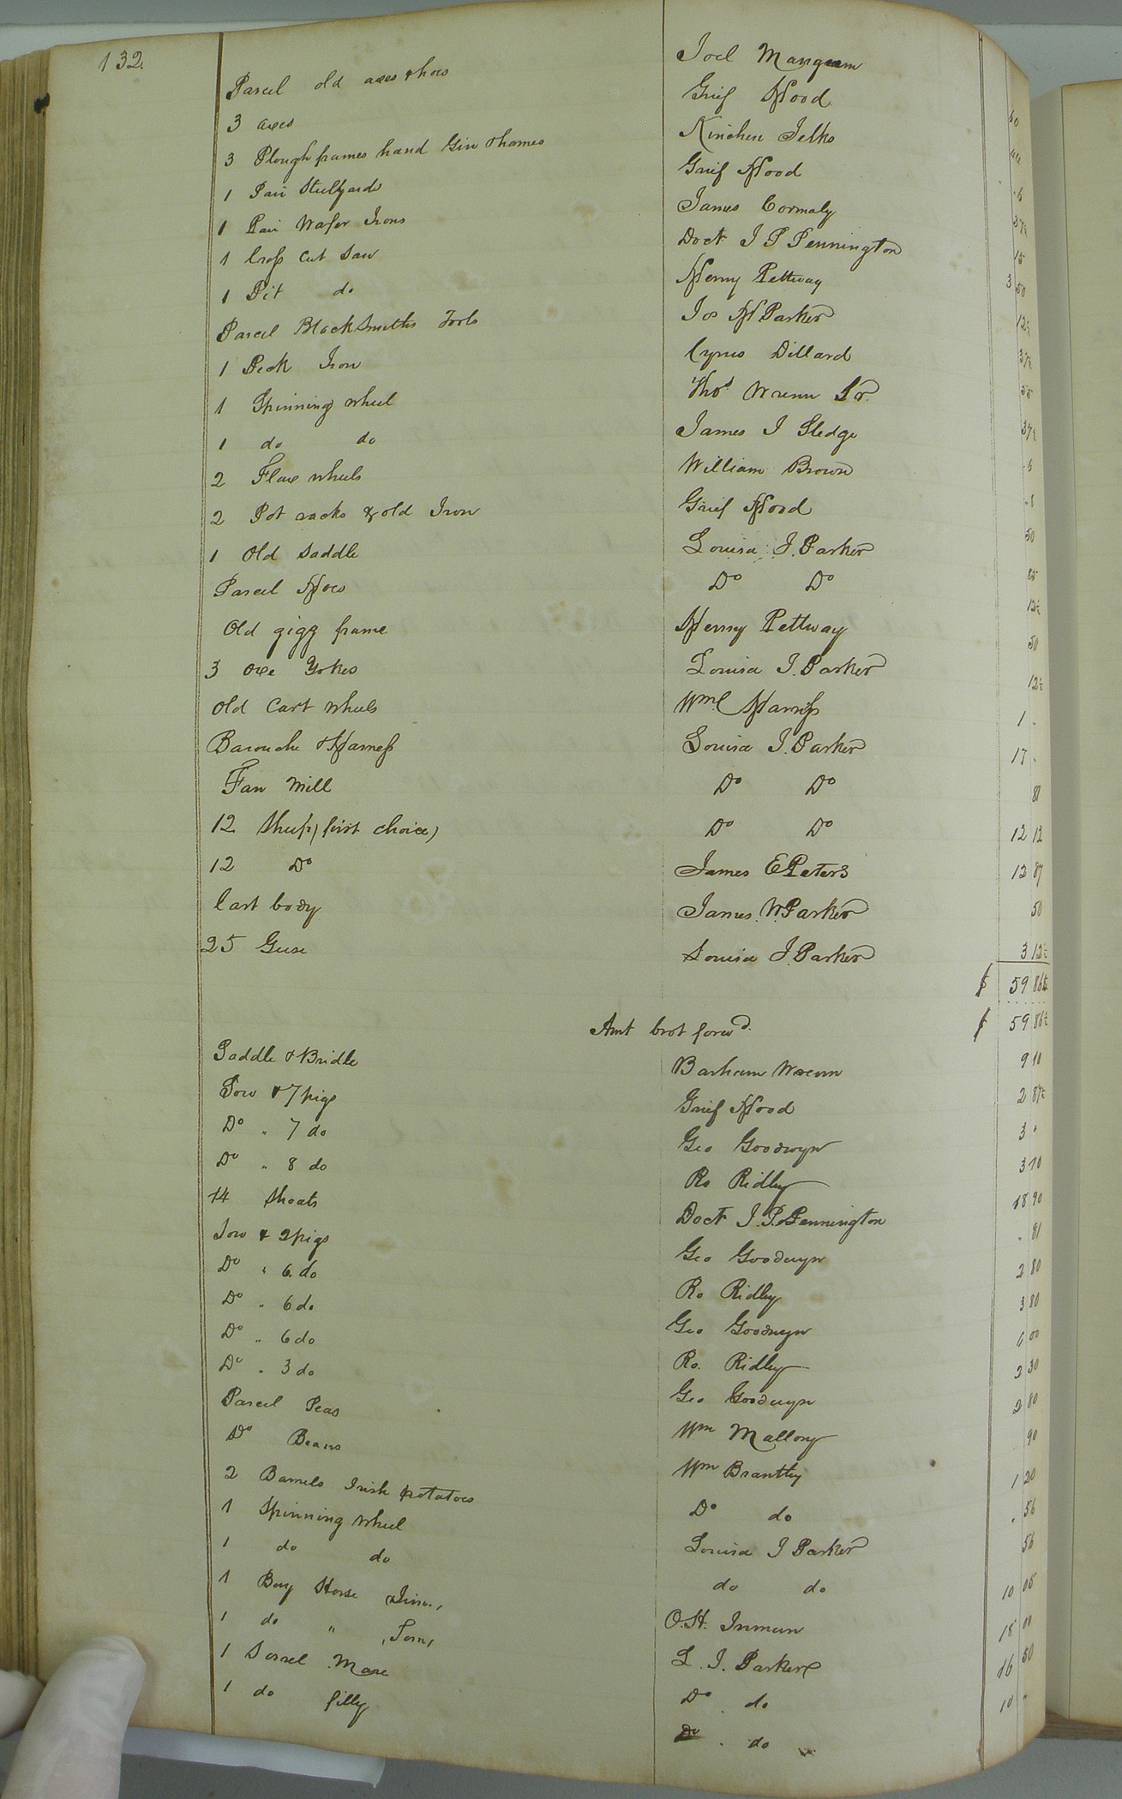 132.
Parcel old axes & hoes Joel Mangum
3 axes Grief Hood
3 Plough frames hand Gin & hames Kinchen Jelks
1 Pair Stillyards Grief Hood
1 Pair Wafer Irons James Cormaly
1 Cross Cut Saw Doct J P Pennington
1 Pit do Henry Pettway 3 50
Parcel BlackSmiths Tools Jos H Parker 12½
1 Peck Iron Cyrus Dillard 37½
1 Spinning wheel Thos Wrenn Sr.
1 do do James J Sledge 37½
2 Flax wheels William Brown
2 Pot racks & old Iron Grief Hood
1 Old Saddle Louisa J. Parker 50
Parcel Hoes Do Do
Old gigg frame Henry Pettway 12½
3 oxe Yokes Louisa J. Parker 50
Old Cart wheels Wm C Harriss 12½
Barouche & Harness Louisa J. Parker 17 -
Fan Mill Do Do 81
12 Sheep (first choice) Do Do 12 12
12 Do James E Peters 12 87
Cart body James. W. Parker 50
25 Geese Louisa J. Parker 3 12½
$ 59 86½
Amt brot forwd. $ 59 86½
Saddle & Bridle Barham Wrenn 9 10
Sow & 7 pigs Grief Hood 2 87½
Do " 7 do Geo Goodwyn 3 "
Do " 8 do Ro Ridley 3 70
14 Shoats Doct J. P. Pennington 18 90
Sow & 2 pigs Geo Goodwyn " 81
Do " 6 do Ro Ridley 2 80
Do " 6 do Geo Goodwyn 3 80
Do " 6 do Ro. Ridley 6 00
Do " 3 do Geo Goodwyn 2 30
Parcel Peas Wm Mallory 2 80
Do Beans Wm Brantley 90
2 Barrels Irish potatoes Do do 1 20
1 Spinning wheel Louisa J Parker 56
1 do do do do 56
1 Bay Horse O. H. Inmun 10
1 do " "Tom" L. J. Parker 18
1 Sorrel Mare Do do 16 50
1 do filly Do " do 10 "